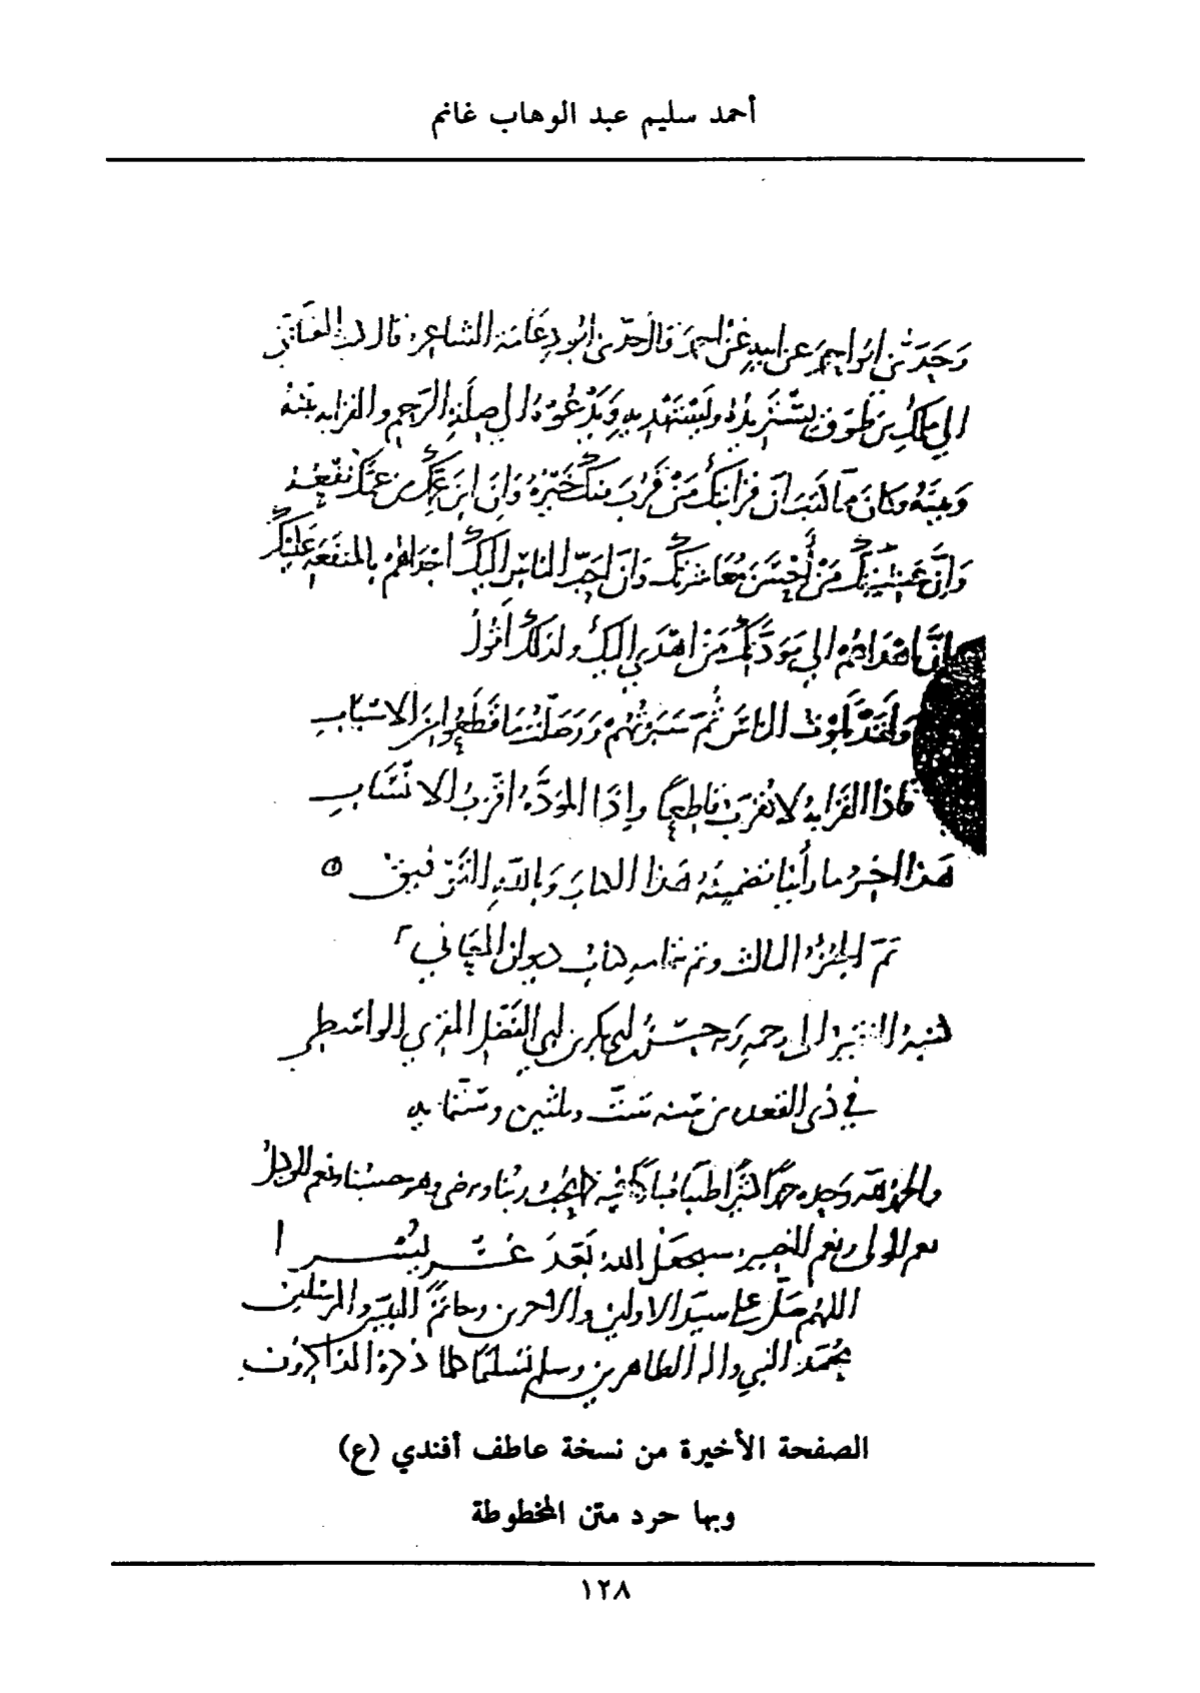 أحمد سليم عبد الوهاب غانم
وَحَدَّثني ابراهيم عن ابيه عن احمد قال حدثني ابو دعامة الشاعر قال كتب العتابي
الى مالك بن طوق يستزيده وليستهديه ويدعوه الى صلة الرحم والقرابة بينه
وبينه وكان مما كتب ان قرابتك من قرب منك خيره وان ابن عمك من عمك نفعه
وان عشيرتك من أحسن معاشرتك وان احب الناس اليك اجداهم بالمنفعة عليك
وان اهداهم الى مودتك من اهدى اليك ولذلك اقول
ولقد بلوت الناس ثم سبرتهم ووصلت ما قطعوا من الاسباب
فاذا القرابة لا تقرب قاطعا واذا المودة اقرب الانساب
هذا اخر ما رأينا تضمينه هذا الكتاب وبالله التوفيق
تم الجزء الثالث وتم بتمامه كتاب ديوان المعاني
كتبه الفقير الى رحمة ربه حسن بن ابي بكر بن ابي الفضل المقري الواسطي
في ذي القعدة من سنة ست وثلثين وستماية
والحمد لله وحده حمدا كثيرا طيبا مباركا فيه كما يحب ربنا ويرضى وهو حسبنا ونعم الوكيل
نعم المولى ونعم النصير سيجعل الله بعد عسر يسرا
اللهم صل على سيد الاولين والاخرين وخاتم النبيين والمرسلين
محمد النبي واله الطاهرين وسلم تسليما كلما ذكره الذاكرون
الصفحة الأخيرة من نسخة عاطف أفندي (ع)
وبها حرد متن المخطوطة
١٢٨